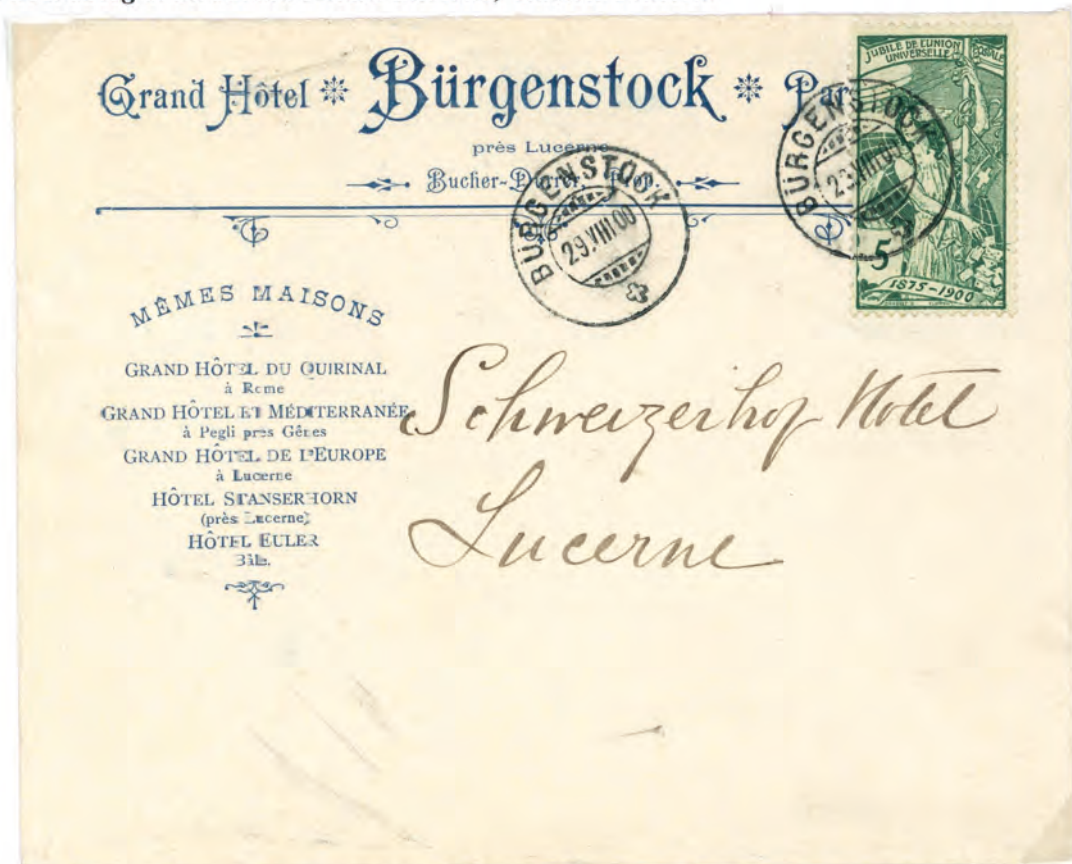 Grand Hôtel * Bürgenstock * Par
près Lucerne
Bucher-Durrer,
BÜRGENSTOCK
29.VIII.00
BÜRGENSTOCK
29.VIII.00
JUBILÉ DE L'UNION POSTALE
UNIVERSELLE
5
1875-1900
MÊMES MAISONS
GRAND HÔTEL DU QUIRINAL
à Rome
GRAND HÔTEL ET MÉDITERRANÉE
à Pegli près Gênes
GRAND HÔTEL DE L'EUROPE
à Lucerne
HÔTEL STANSERHORN
(près Lucerne)
HÔTEL EULER
Bâle.
Schweizerhof Hotel
Lucerne